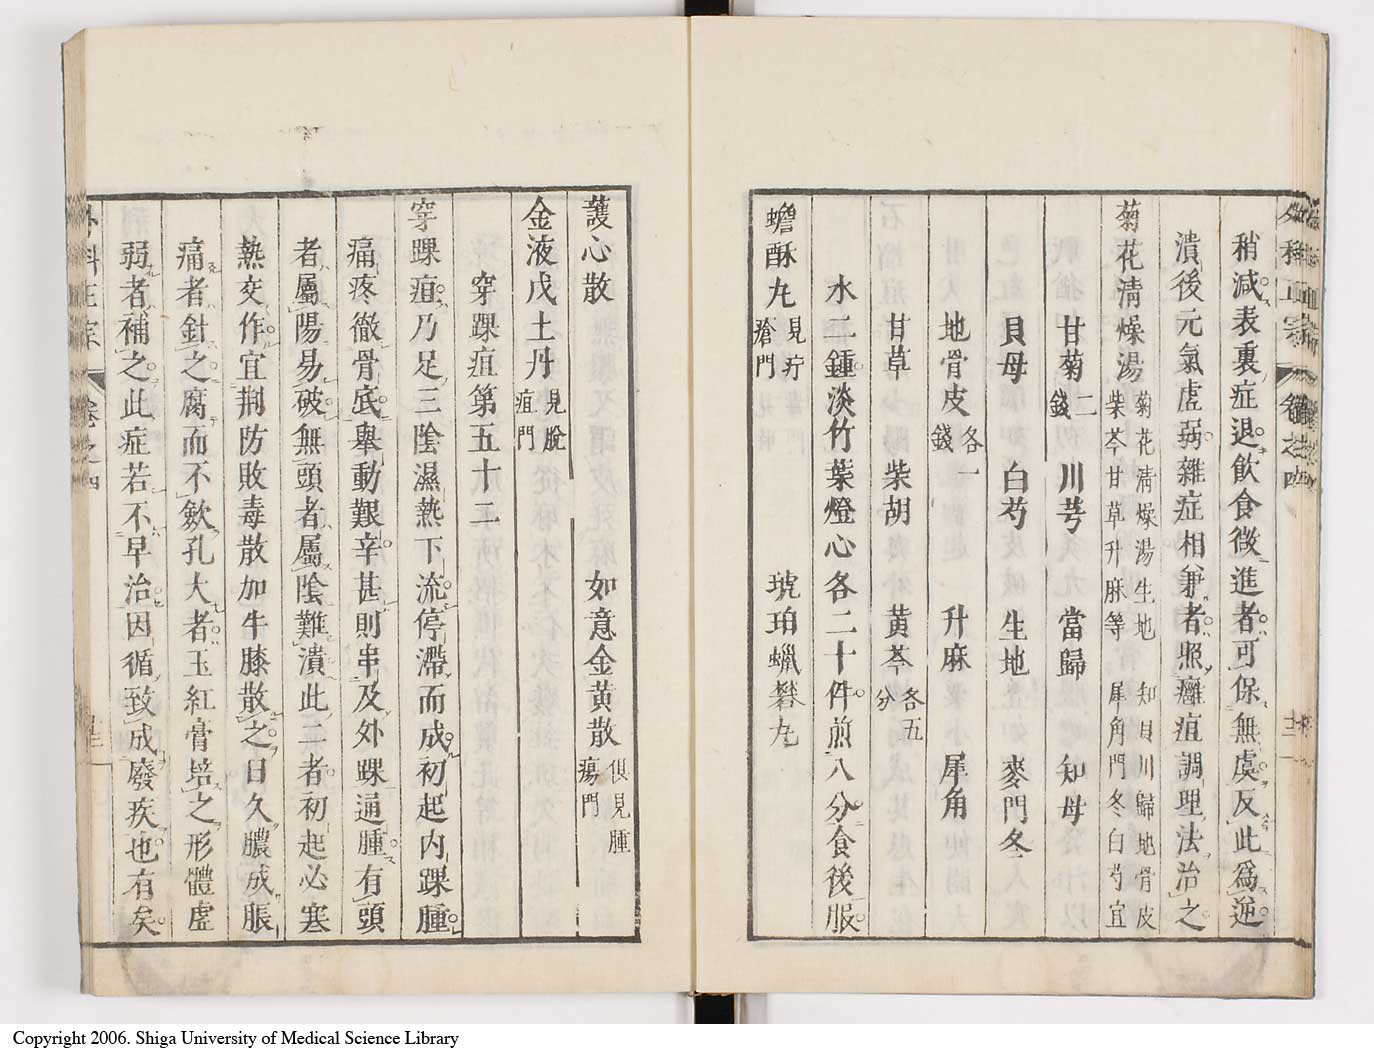 稍減表裏症退飲食微進者可保無虞反此爲逆
潰後元氣虛弱雜症相兼者照癰疽調理法治之
菊花清燥湯
菊花清燥湯生地 知貝川歸地骨皮
柴芩甘草升麻等 犀角門冬白芍宜
甘菊二錢 川芎 當歸 知母
貝母 白芍 生地 麥門冬
地骨皮各一錢 升麻 犀角
甘草 柴胡 黃芩各五分
水二鍾淡竹葉燈心各二十件煎八分食後服
蟾酥丸見疔瘡門 琥珀蠟礬丸
護心散 如意金黄散俱見腫瘍門
金液戊土丹見脫疽門
穿踝疽第五十二
穿踝疽乃足三陰濕熱下流停滯而成初起内踝腫
痛疼徹骨底舉動艱辛甚則串及外踝通腫有頭
者屬陽易破無頭者屬陰難潰此二者初起必寒
熱交作宜荆防敗毒散加牛膝散之日久膿成脹
痛者針之腐而不歛孔大者玉紅膏培之形體虛
弱者補之此症若不早治因循致成廢疾也有矣
外科正宗 卷之四
Copyright 2006. Shiga University of Medical Science Library